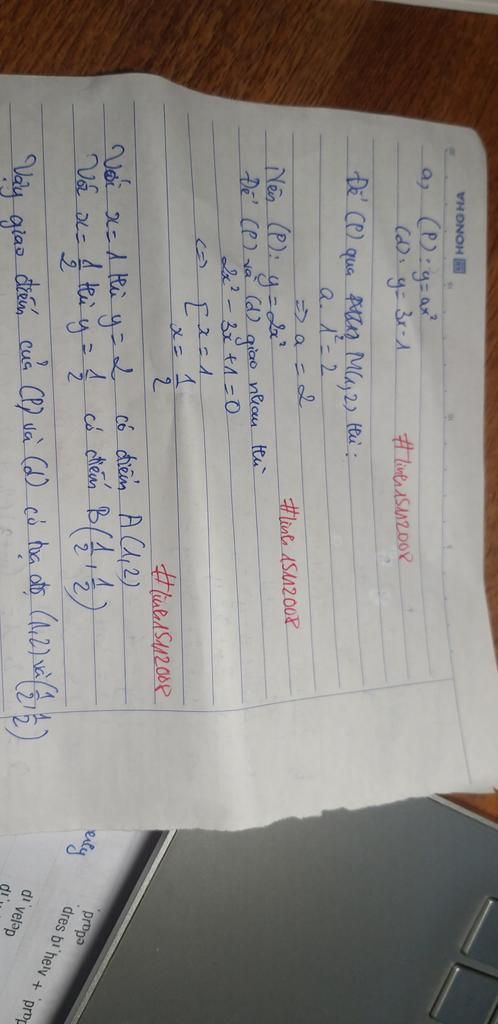 HONGHA
a, (P): y = ax²
(d): y = 3x - 1
#linh15112008
Để (P) qua M(1,2) thì:
a. 1² = 2
=> a = 2
#linh15112008
Nên (P): y = 2x²
Để (P) và (d) giao nhau thì
2x² - 3x + 1 = 0
<=> [ x = 1
x = 1/2
#linh15112008
Với x = 1 thì y = 2 có điểm A(1,2)
Với x = 1/2 thì y = 1/2 có điểm B(1/2, 1/2)
Vậy giao điểm của (P) và (d) có tọa độ (1,2) và (1/2, 1/2)
propo
dres bi heiv + prop
di velop